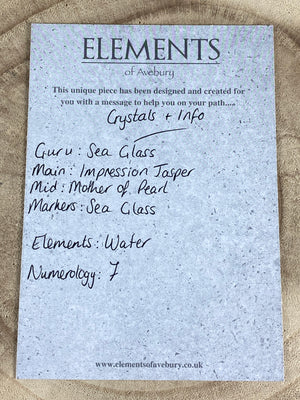 ELEMENTS
of Avebury
This unique piece has been designed and created for
you with a message to help you on your path.....
Crystals + Info
Guru: Sea Glass
Main: Impression Jasper
Mid: Mother of Pearl
Markers: Sea Glass
Elements: Water
Numerology: 7
www.elementsofavebury.co.uk